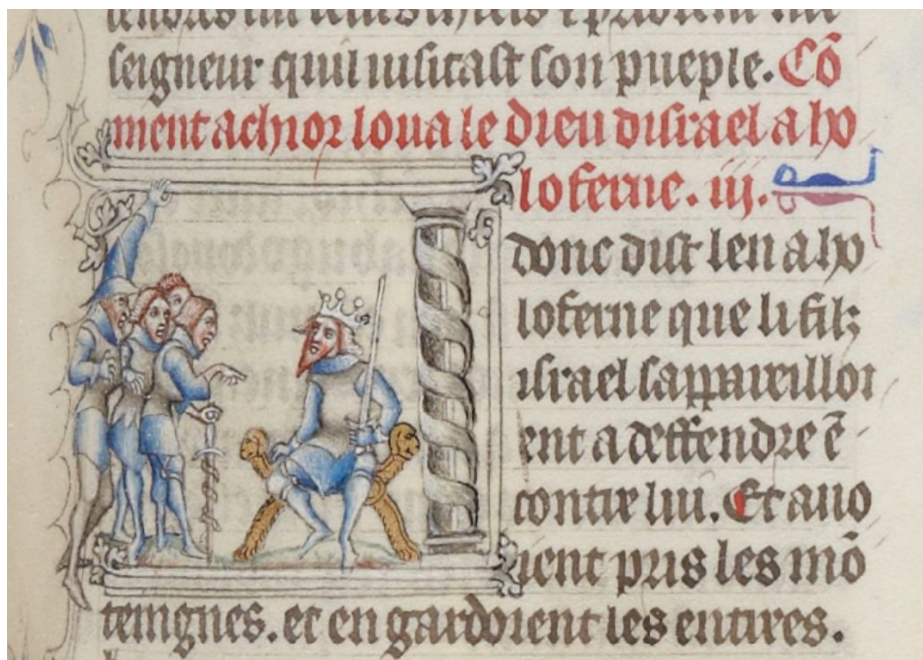 seigneur quil visitast son pueple. Cõ
ment achior loua le dieu disrael a ho
loferne. iij.
donc dist len a ho
loferne que li filz
israel sappareilloi
ent a deffendre ẽ
contre lui. Et auo
ient pris les mõ
teingnes. et en gardoient les entrees.